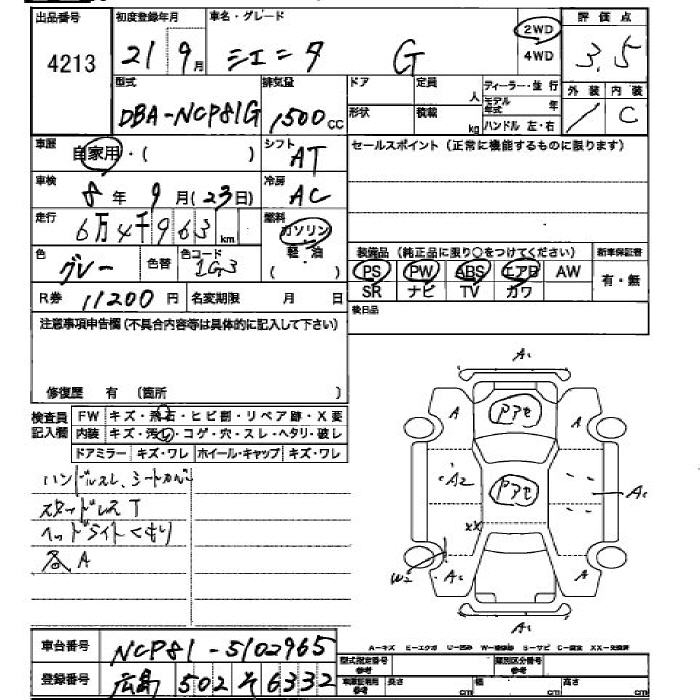 出品番号 初度登録年月 車名・グレード 2WD 評価点
4213 21 9月 シエンタ G 4WD 3.5
型式 排気量 ドア 定員 人 ディーラー・並行 外装 内装
DBA-NCP81G 1500cc 形状 積載 kg モデル年式 年 C
ハンドル 左・右
車歴 自家用・( ) シフト AT セールスポイント(正常に機能するものに限ります)
車検 8年 9月(23日) 冷房 AC
走行 6万4千963km 燃料 ガソリン
軽・油
( )
色 グレー 色替 色コード 1G3 装備品(純正品に限り○をつけてください) 新車保証書
PS PW ABS エアB AW 有・無
SR ナビ TV カワ
R券 11200円 名変期限 月 日 後日品
注意事項申告欄(不具合内容等は具体的に記入して下さい)
修復歴 有 (箇所 )
検査員記入欄 FW キズ・飛石・ヒビ割・リペア跡・X変
内装 キズ・汚し・コゲ・穴・スレ・ヘタリ・破レ
ドアミラー キズ・ワレ ホイール・キャップ キズ・ワレ
ハンドルスレ、シートカバー
スタッドレスT
ヘッドライトくもり
各A
A1
A A
アセ
A2 アセ A1
XX
W2 A1 A
A1
A-キズ E-エクボ U-凹み W-補修跡 S-サビ C-腐食 XX-交換済
車台番号 NCP81-5102965
登録番号 広島 502 そ 6332
型式指定番号 参考 類別区分番号 参考
車庫証明用 参考 長さ cm 幅 cm 高さ cm